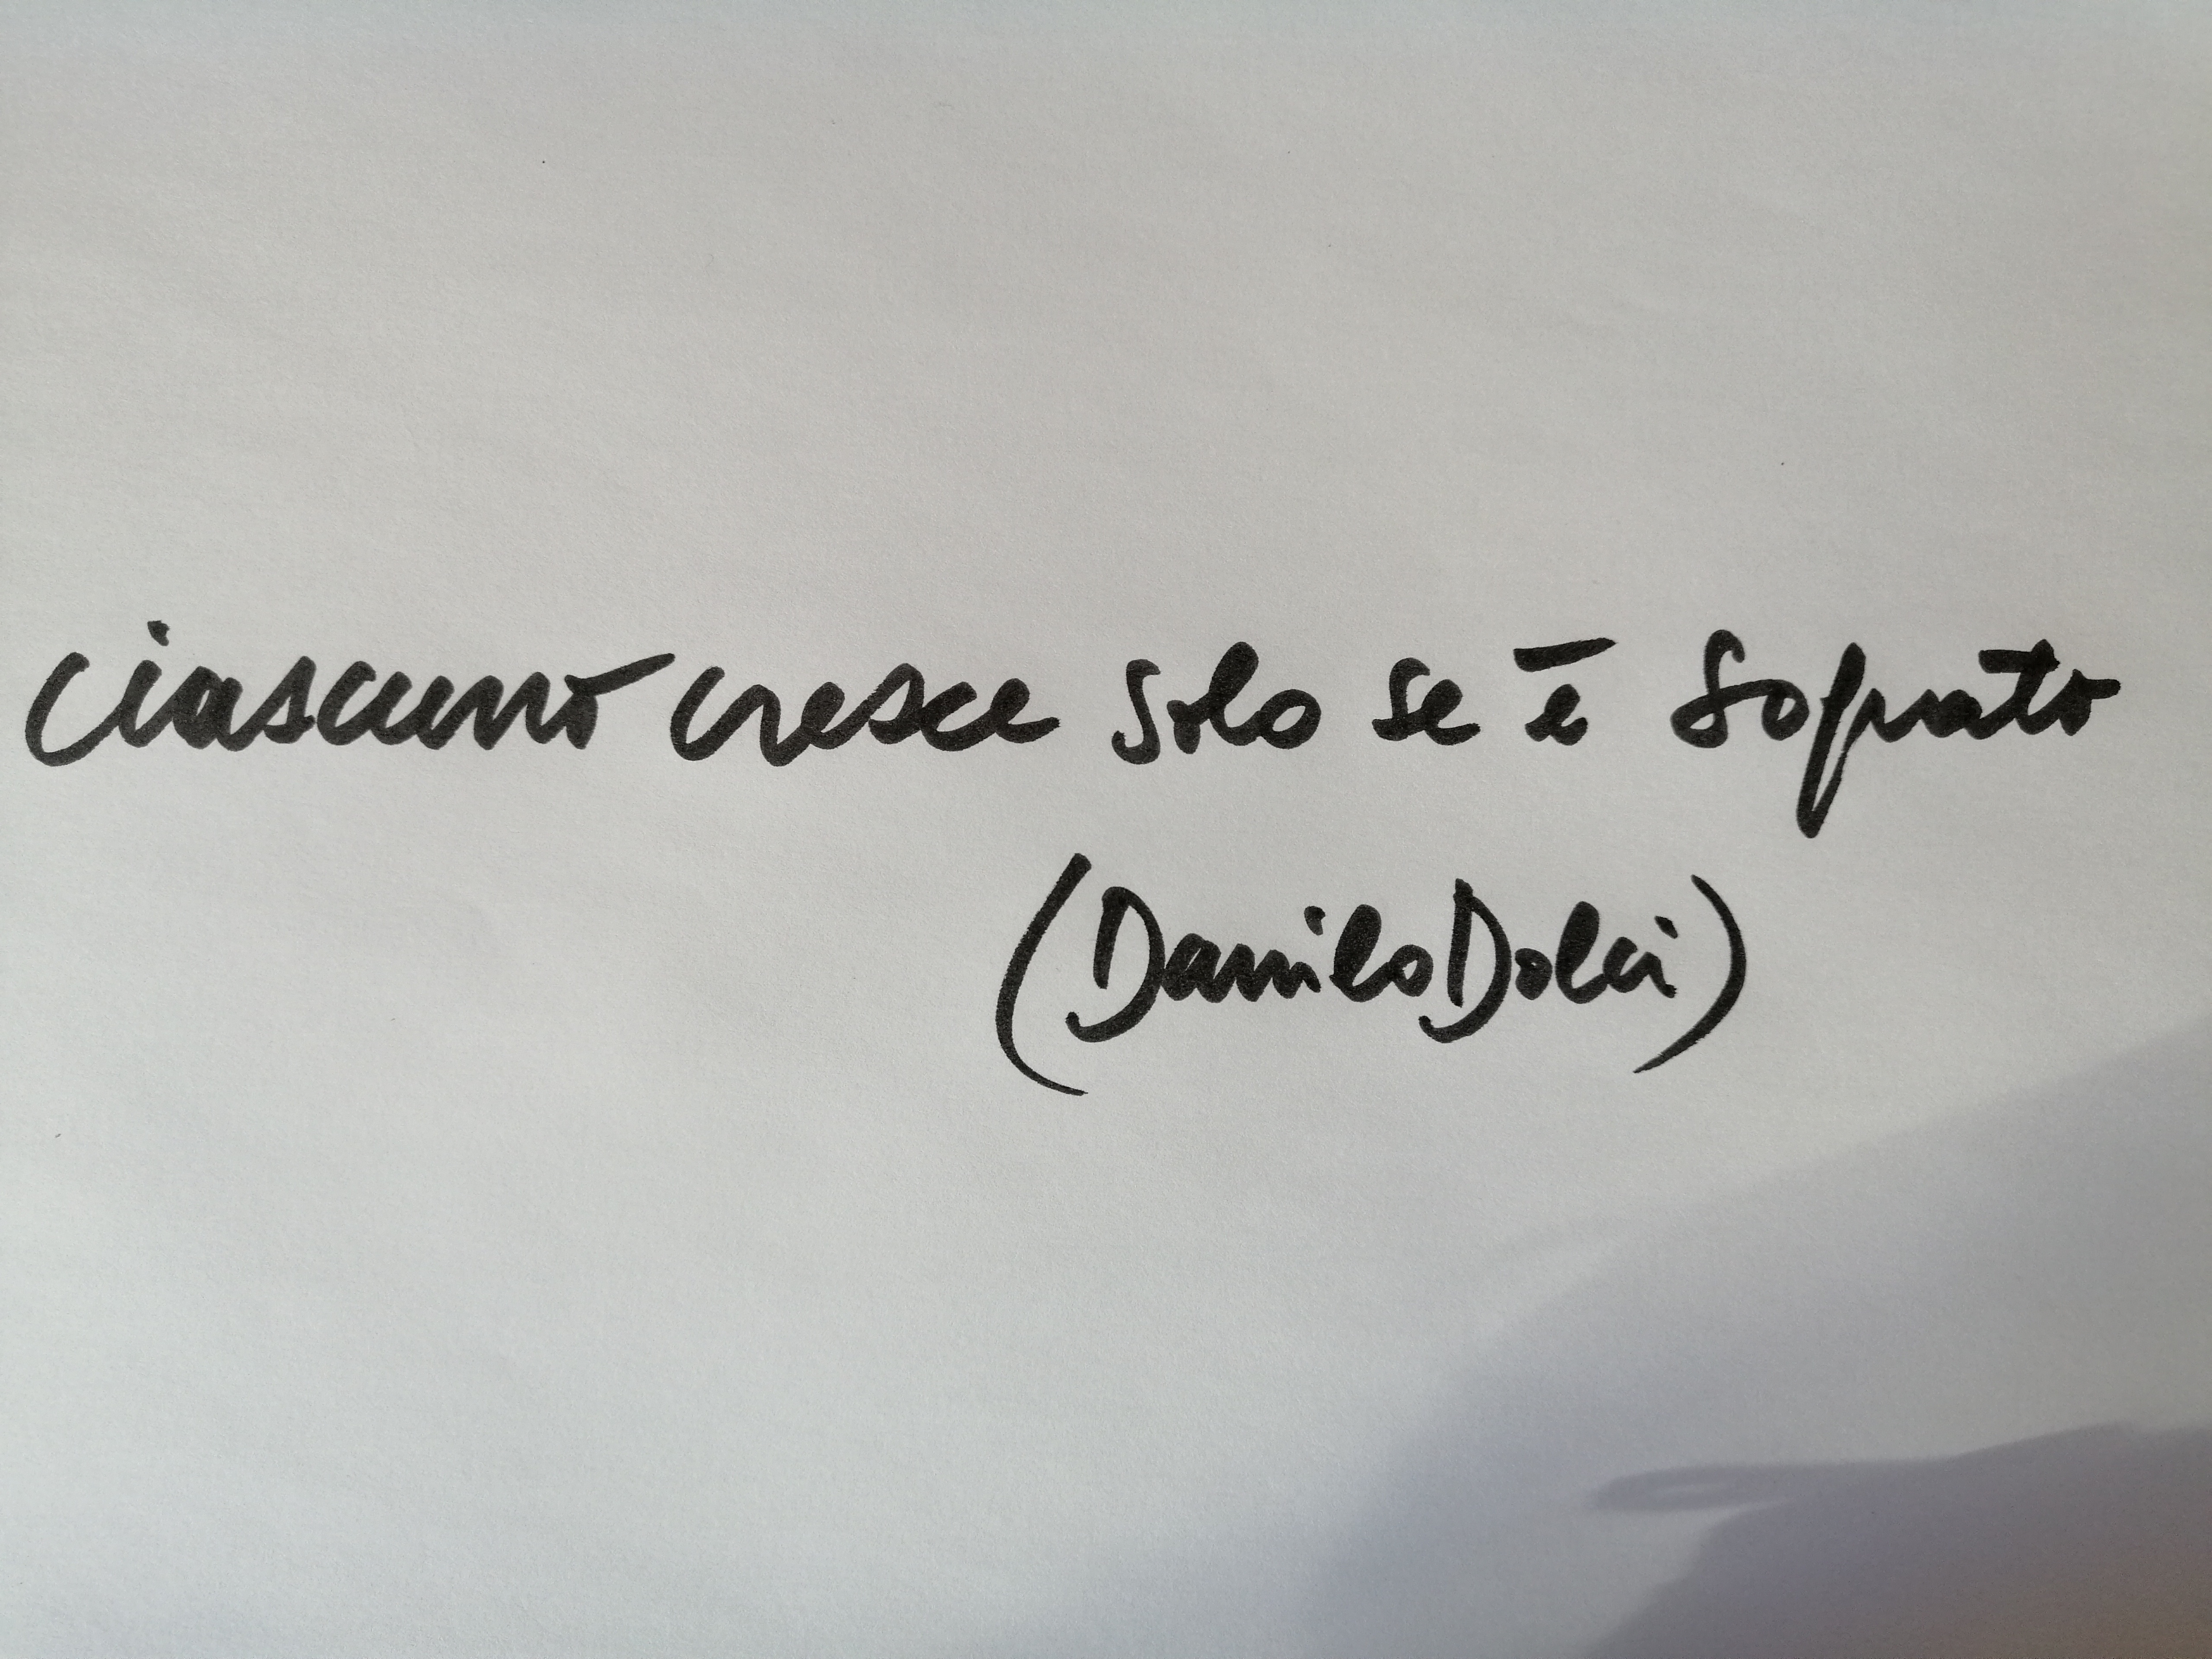 ciascuno cresce solo se è sognato
(Danilo Dolci)